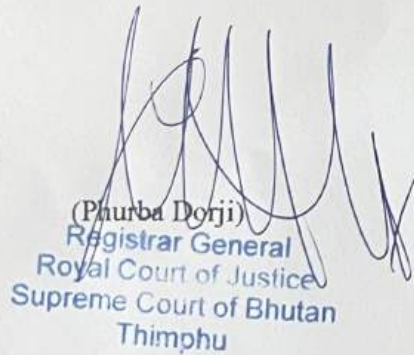 (Phurba Dorji)
Registrar General
Royal Court of Justice
Supreme Court of Bhutan
Thimphu